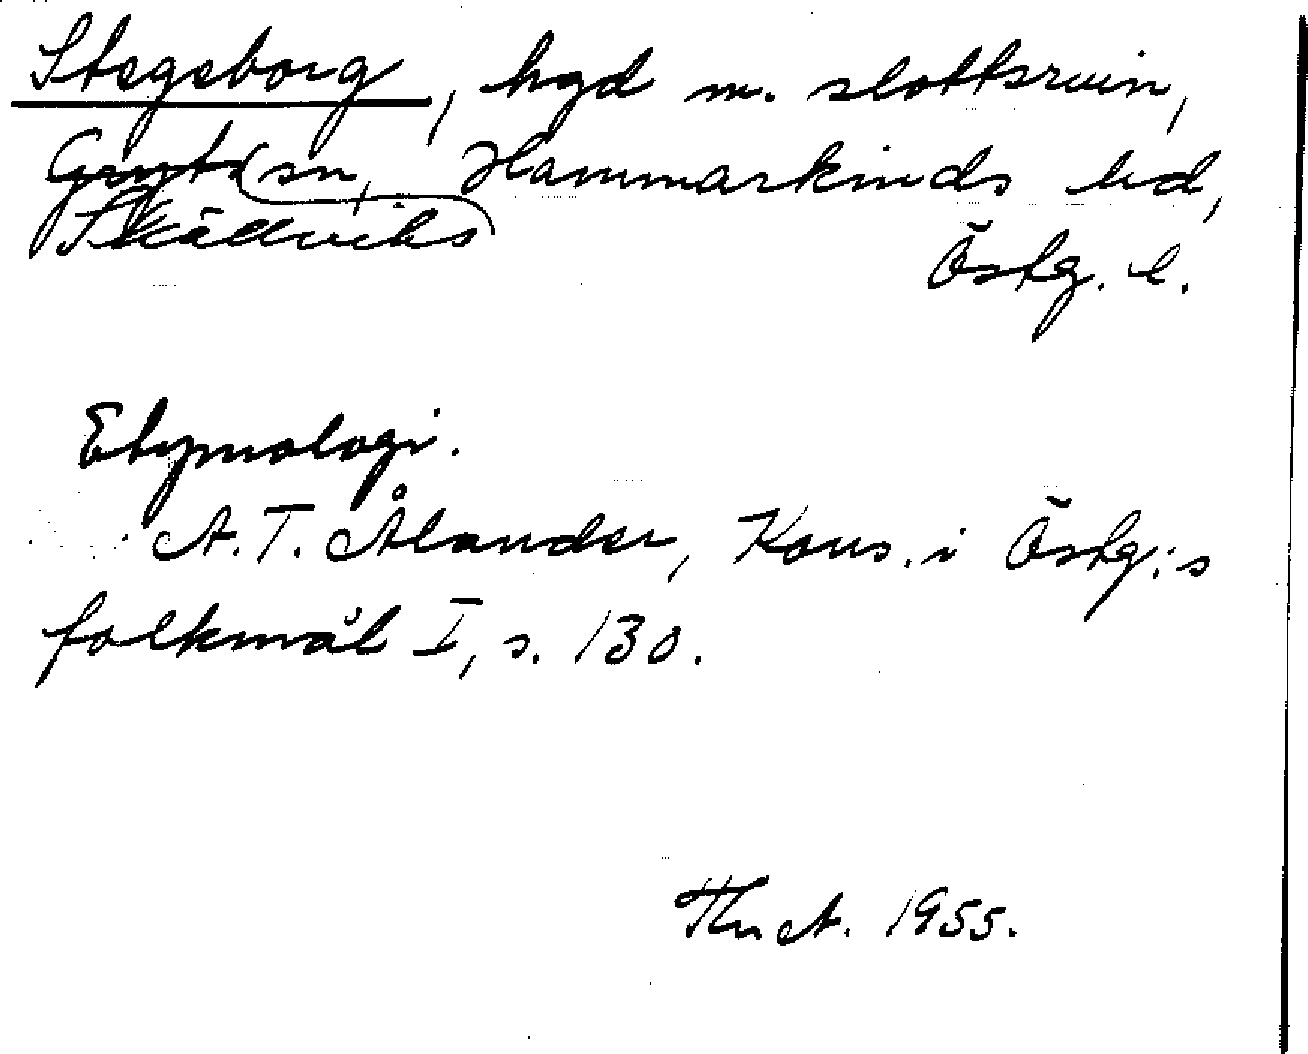 Stegeborg, hgd m. slottsruin,
Gryts sn, Hammarkinds hd,
Skällviks
Östg. l.
Etymologi.
A. T. Ålander, Kons. i Östg:s
folkmål I, s. 130.
Th A. 1955.